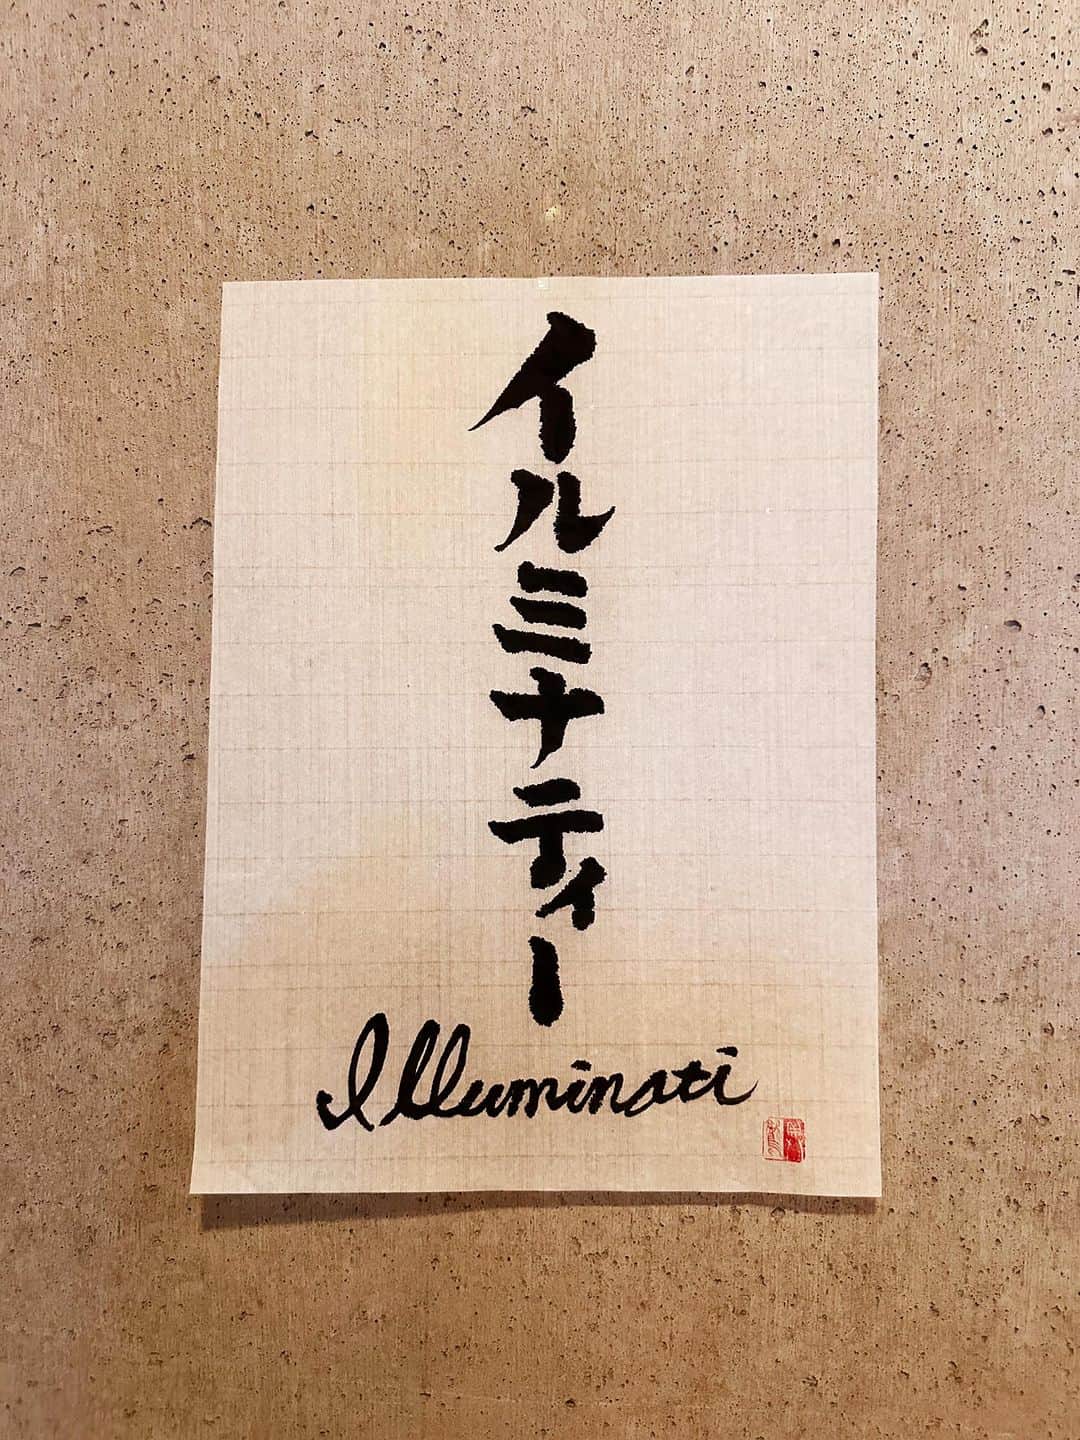 イルミナティー
Illuminati